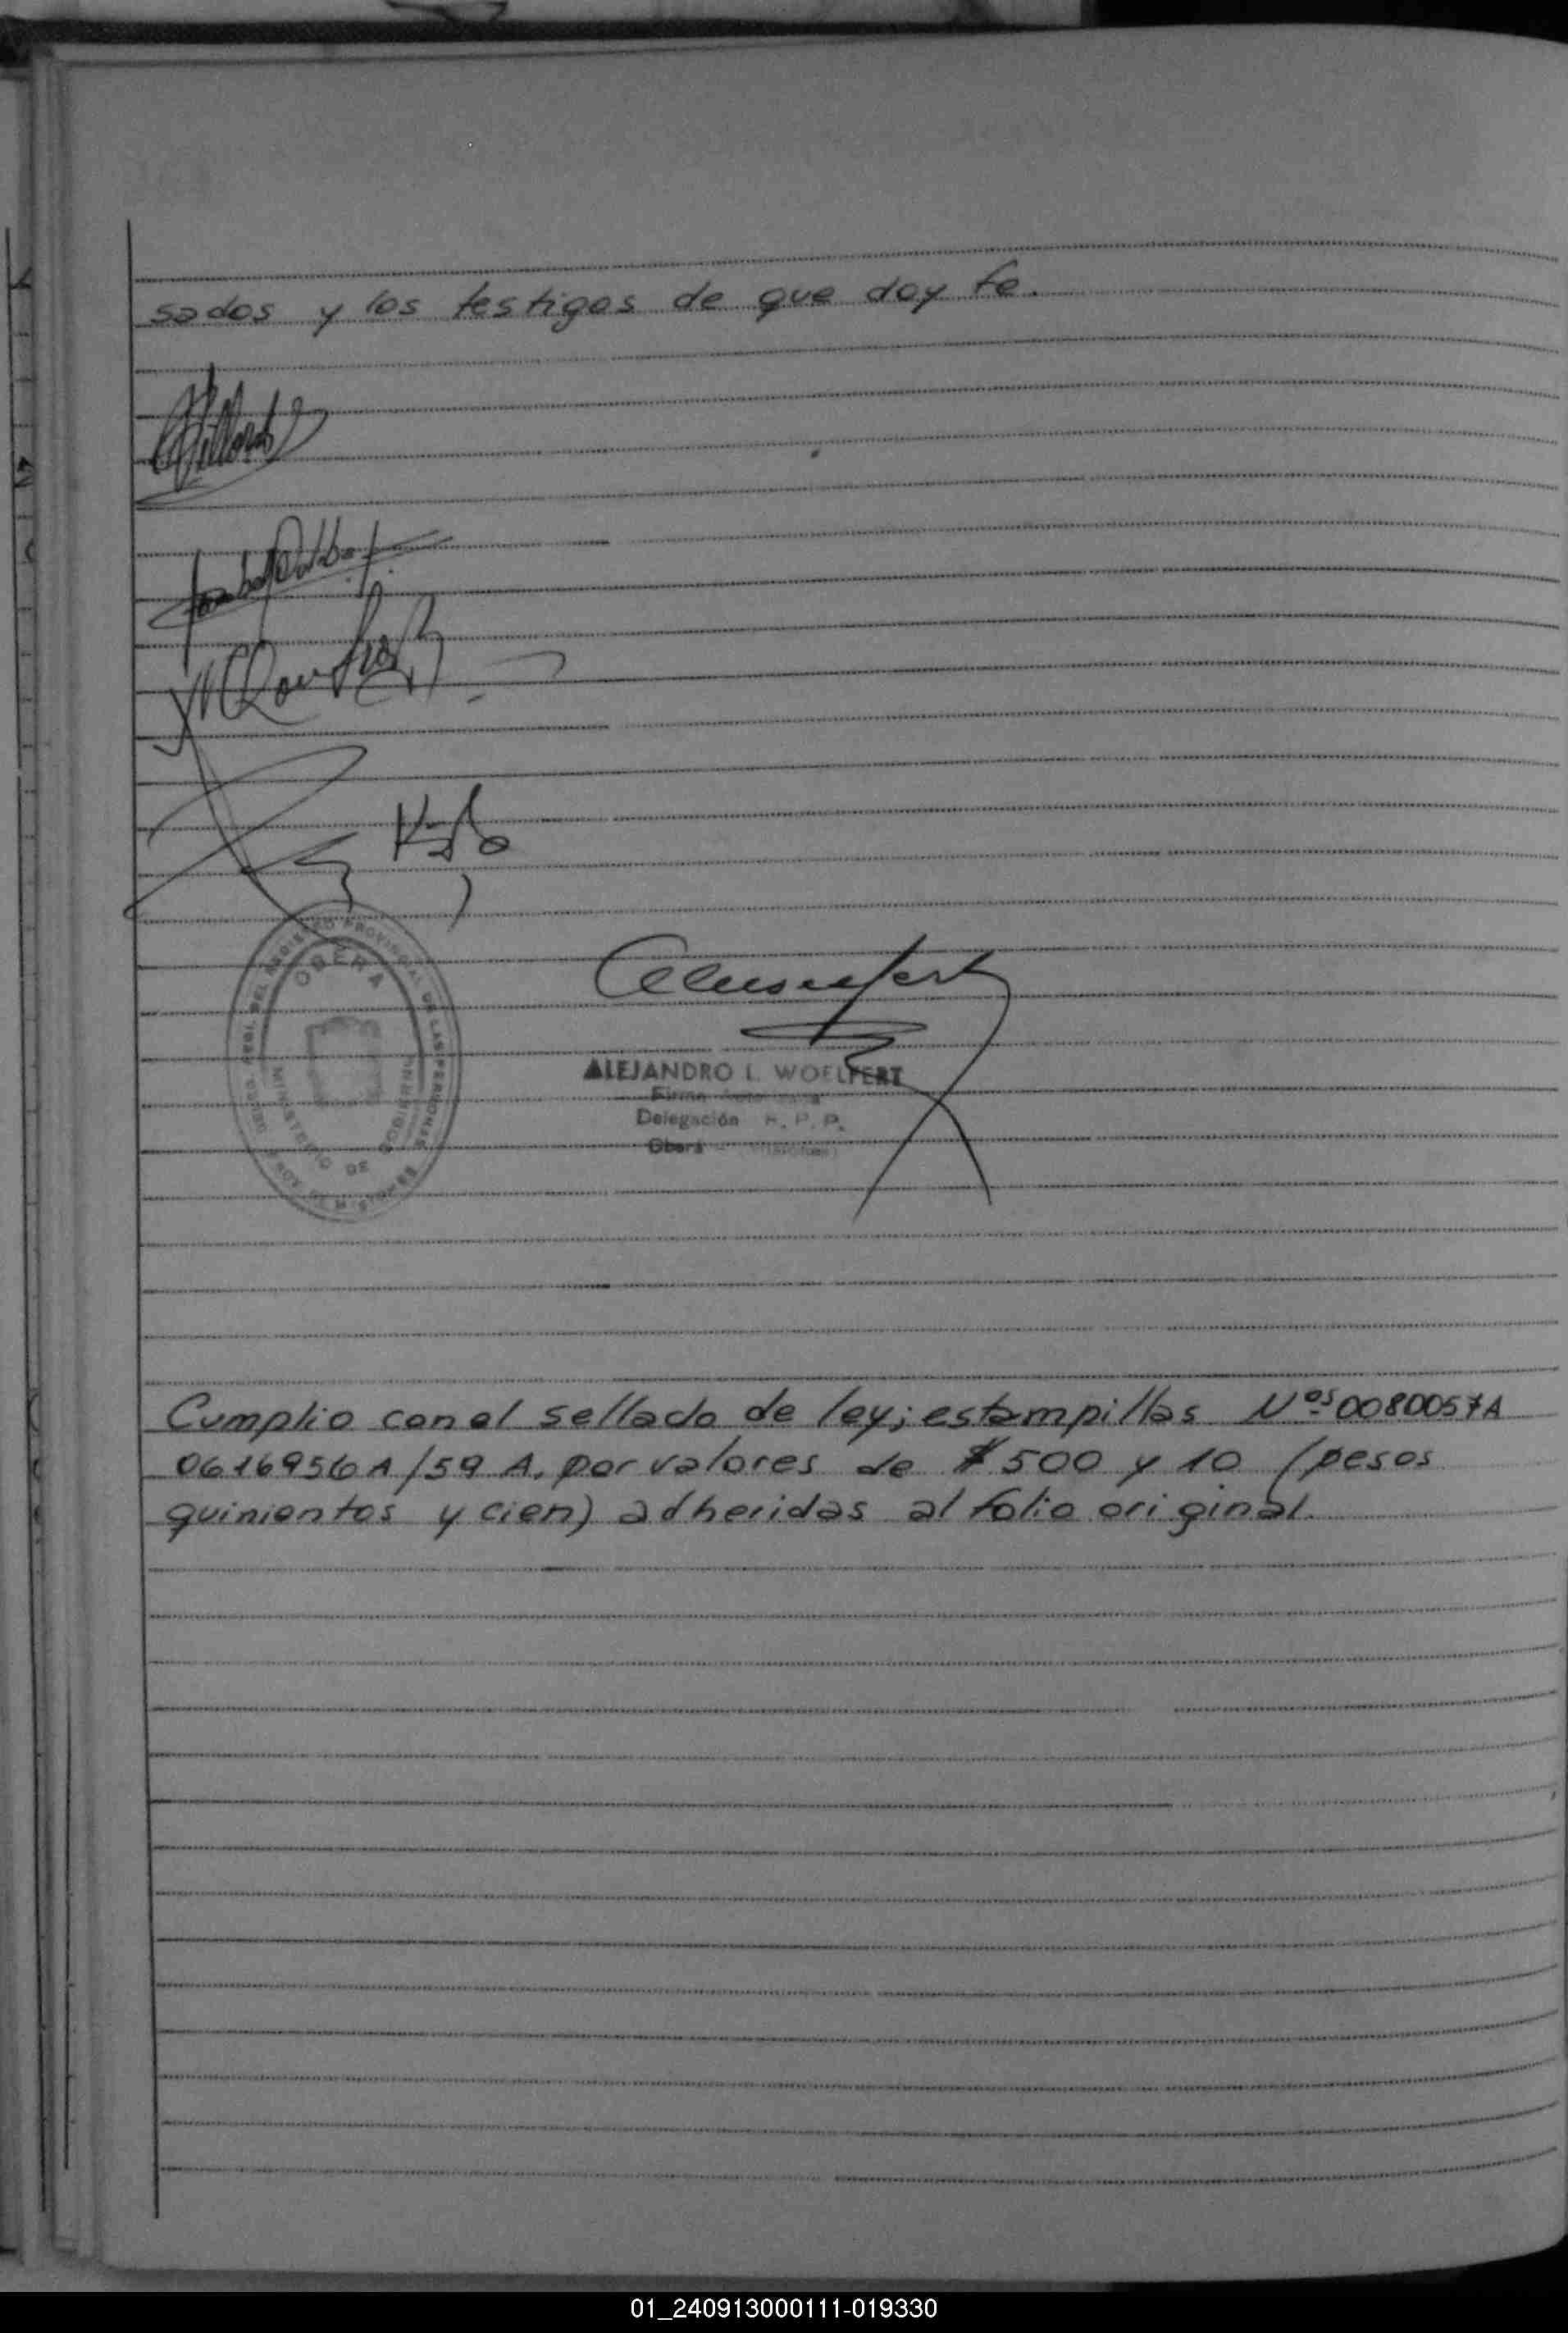 sados y los testigos de que doy fe.
OBERA
MINISTERIO DE GOBIERNO
ALEJANDRO L. WOELFERT
Firma
Delegación R. P. P.
Oberá (Misiones)
Cumplio con el sellado de ley; estampillas Nos 0080057A
0616956A/59 A, por valores de $ 500 y 10 (pesos
quinientos y cien) adheridas al folio original.
01_240913000111-019330